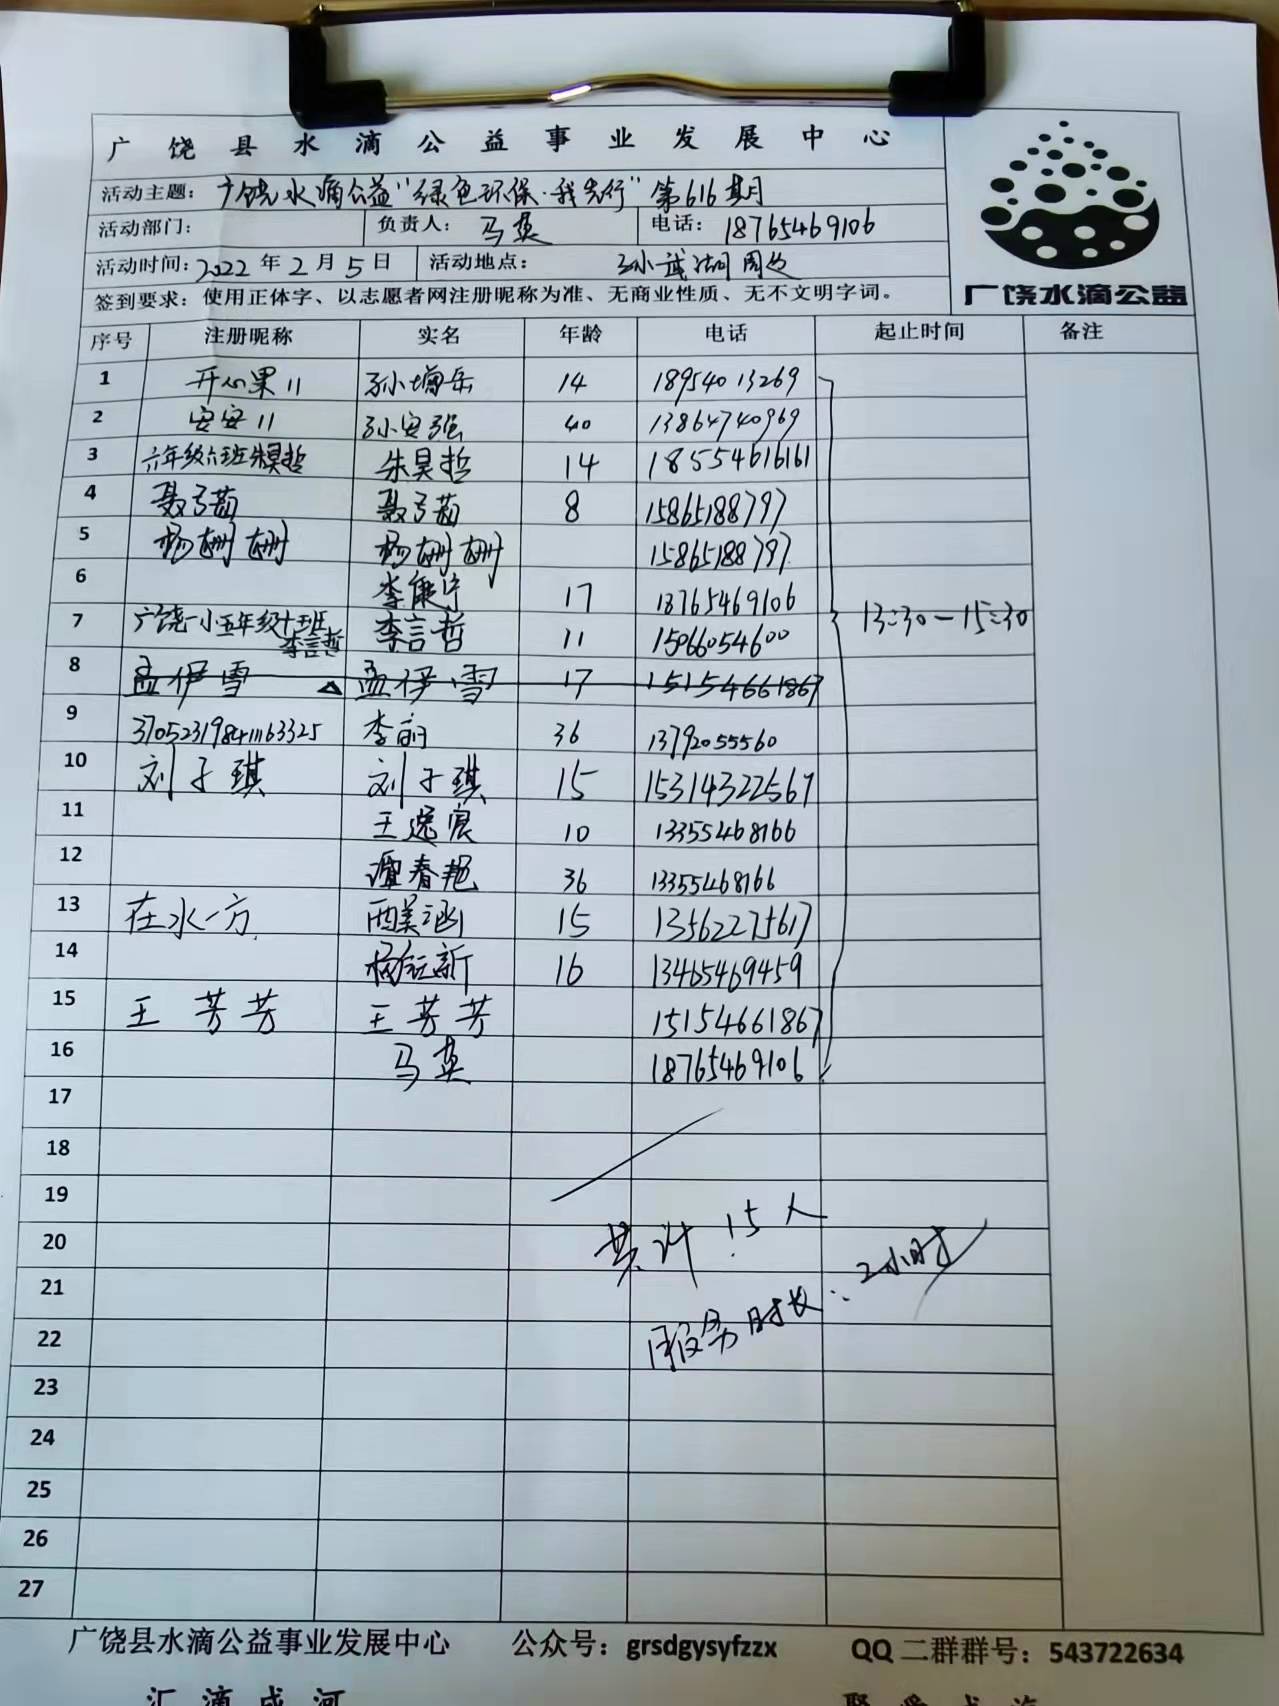 广饶县水滴公益事业发展中心
活动主题：广饶水滴公益“绿色环保·我先行”第616期
活动部门： 负责人：马英 电话：18765469106
活动时间：2022年2月5日 活动地点：孙武湖周边
签到要求：使用正体字、以志愿者网注册昵称为准、无商业性质、无不文明字词。
广饶水滴公益
序号 注册昵称 实名 年龄 电话 起止时间 备注
1 开心果11 孙增岳 14 18954013269
2 安安11 孙安强 40 13864740969
3 六年级六班朱昊哲 朱昊哲 14 18554616161
4 聂弓茹 聂弓茹 8 15865188797
5 杨姗姗 杨姗姗 15865188797
6 李康宁 17 18765469106
7 广饶一小五年级十班李言哲 李言哲 11 15066054600 13:30—15:30
8 孟伊雪 孟伊雪 17 15154661867
9 370523198411163325 李丽 36 13792055560
10 刘子琪 刘子琪 15 15314322567
11 王逸宸 10 13355468166
12 春艳 36 13355468166
13 在水一方. 美涵 15 13562275617
14 杨新 16 13465469459
15 王芳芳 王芳芳 15154661867
16 马英 18765469106
17
18
19
20 共计15人
21
22 服务时长：2小时
23
24
25
26
27
广饶县水滴公益事业发展中心 公众号：grsdgysyfzzx QQ二群群号：543722634
汇滴成河 聚爱成海